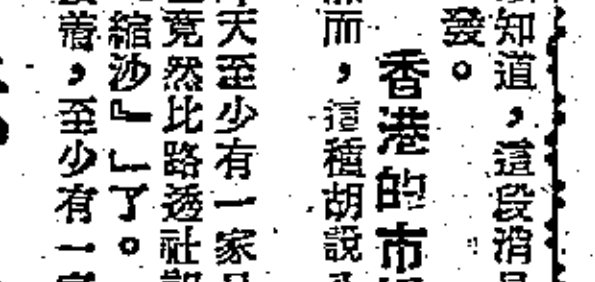 知道，這段消
發。
香港的市
而，這種胡說
天至少有一家
竟然比路透社
縮沙』」了。
着，至少有一